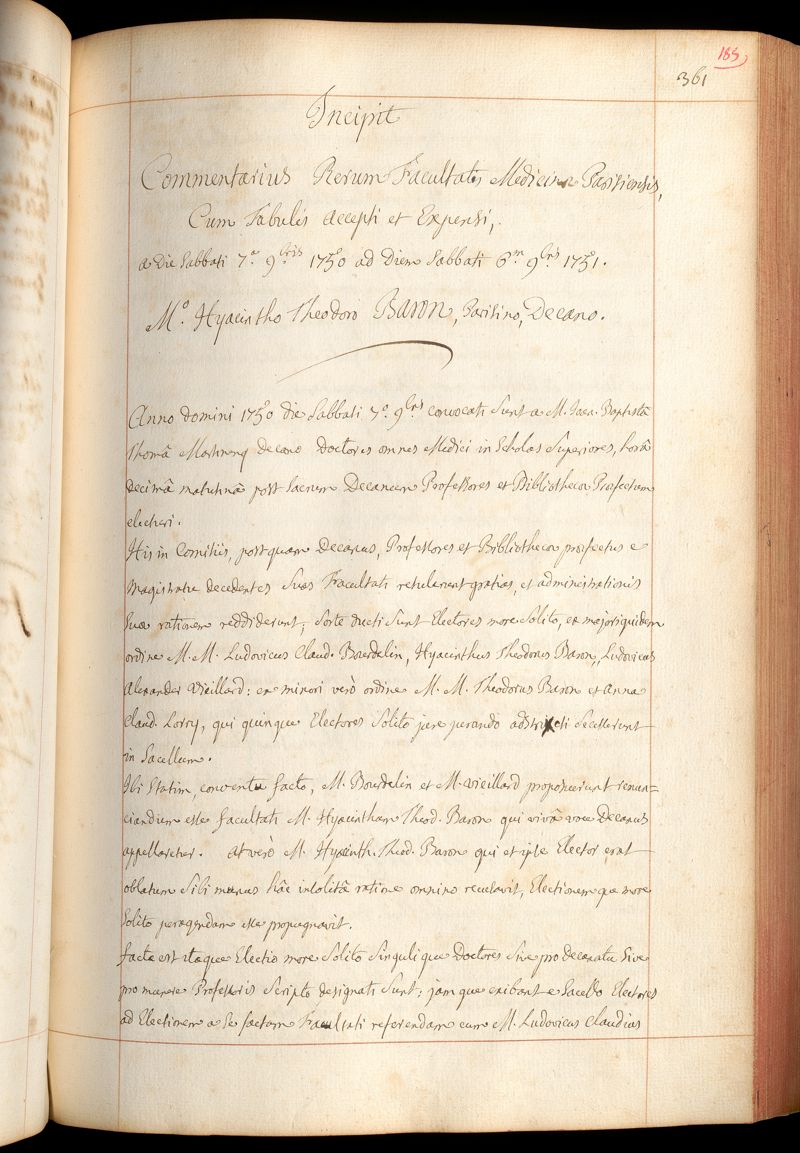 185
361
Incipit
Commentarius Rerum Facultatis Medicinæ Parisiensis,
Cum Tabulis accepti et Expensi,
a Die Sabbati 7ª 9bris 1750 ad Diem Sabbati 6m 9bris 1751.
Mº. Hyacintho Theodoro Baron, Parisino, Decano.
Anno domini 1750 die Sabbati 7ª 9bris convocati sunt a M. Jaca. Baptistâ
Thomâ Martinenq decano Doctores omnes Medici in Scholas Superiores, horâ
decimâ matutinâ post Sacrum Decanum Professores et Bibliothecæ Præfectum
electuri.
His in Comitiis, postquam Decanus, Professores et Bibliothecæ præfectus e
Magistratu decedentes suas Facultati retulerunt gratias, et administrationis
suæ rationem reddiderunt; sorte ducti sunt Electores more solito, ex majori quidem
ordine M. M. Ludovicus Claud. Bourdelin, Hyacinthus Theodorus Baron, Ludovicus
Alexander Vieillard: ex minori verò ordine M. M. Theodorus Baron et Anna
Claud. Lorry, qui quinque Electores solito jure jurando adstricti secesserunt
in Sacellum.
Ibi statim, conventu facto, M. Bourdelin et M. Vieillard proposuerunt renun=
ciandum esse facultati M. Hyacinthum Theod. Baron qui vivâ voce Decanus
appellaretur. At verò M. Hyacinth. Theod. Baron qui et ipse Elector erat
oblatum sibi munus hâc insolitâ ratione omnino recusavit, Electionemque more
solito peragendam esse propugnavit.
facta est itaque Electio more solito singulique Doctores sive pro Decanatu sive
pro munere Professoris scripto designati sunt; jamque exibant e Sacello Electores
ad Electionem a se factam Facultati referendam cum M. Ludovicus Claudius